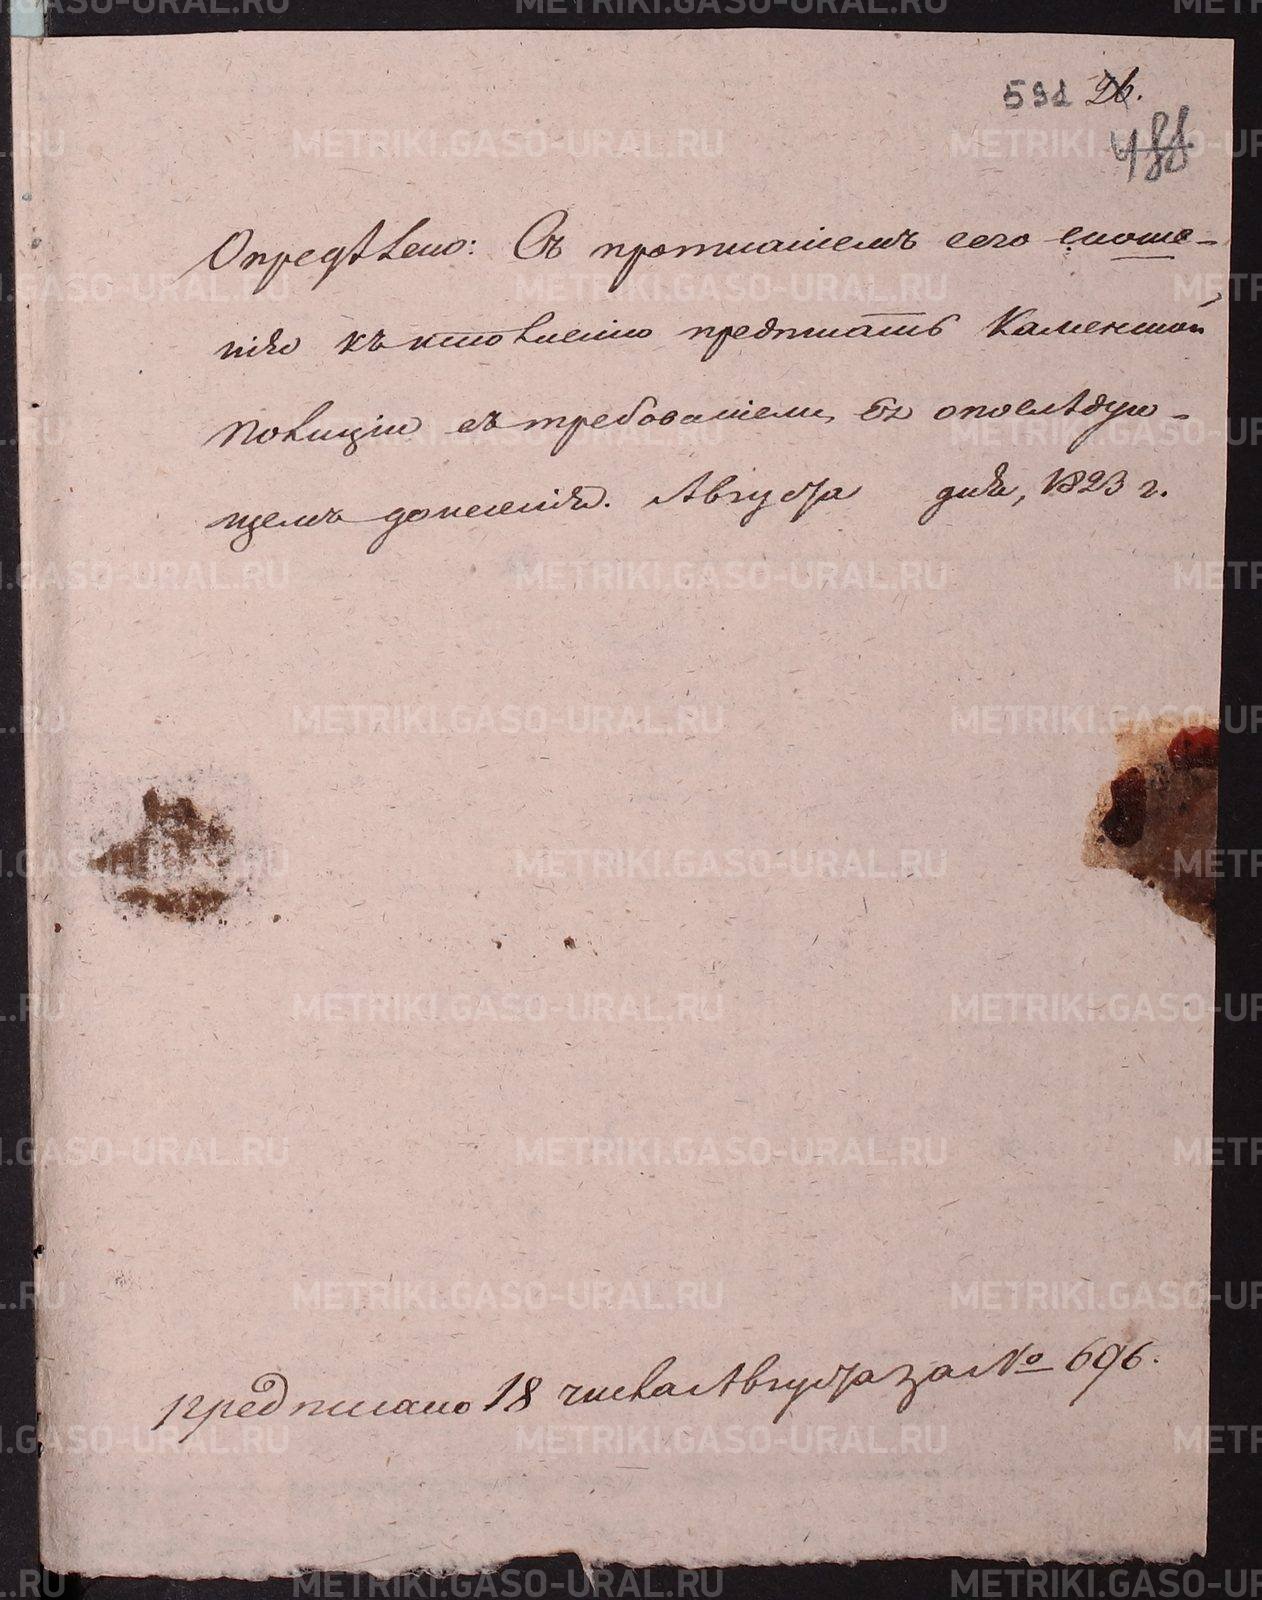 591 26.
488
Опредѣлено: Съ прописаніемъ сего сноше-
нія къ исполненію предписать Каменской
Полиціи съ требованіемъ о послѣдую-
щемъ донесенія. Августа дня, 1823 г.
предписано 18 числа Августа за № 696.
METRIKI.GASO-URAL.RU